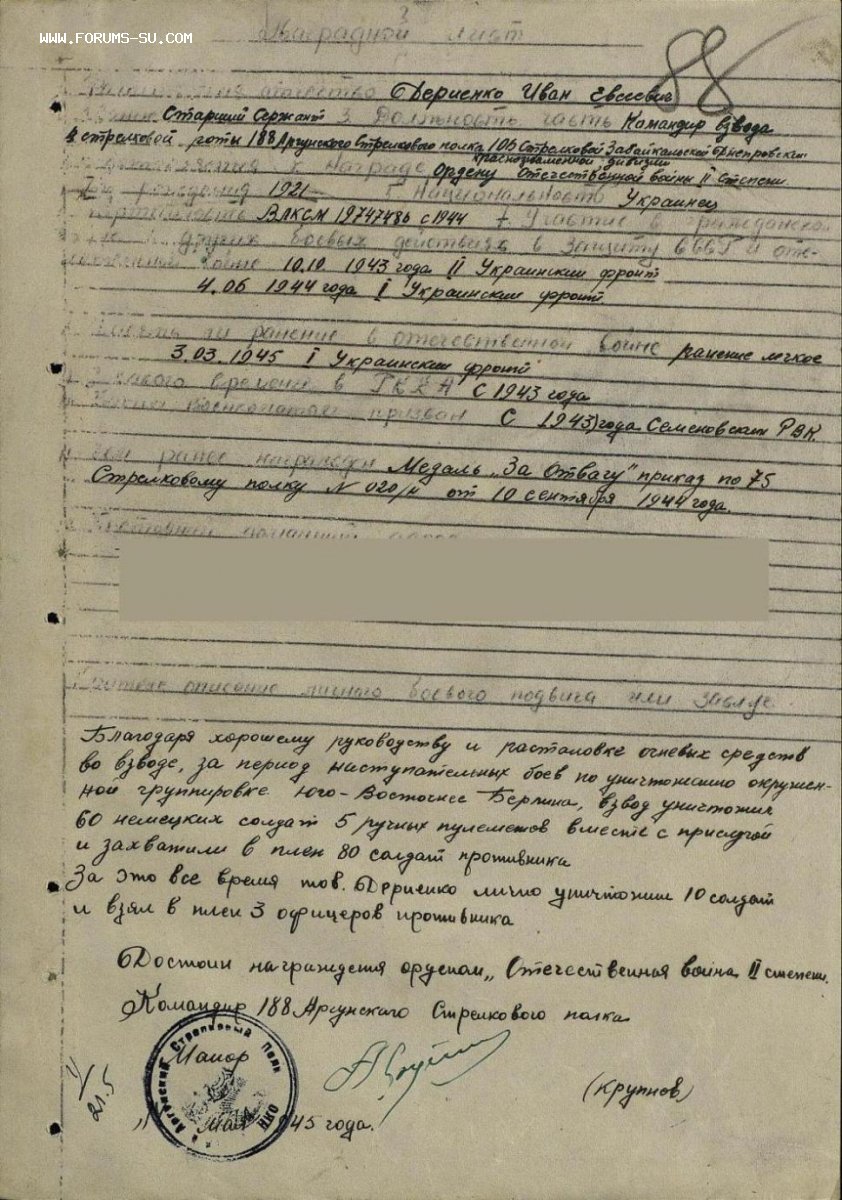 www.forums-su.com
3
Наградной лист
88
Фамилия имя отчество Дериенко Иван Евсеевич
Старший Сержант 3 Должность, часть Командир взвода
стрелковой роты 188 Аргунского Стрелкового полка 106 Стрелковой Забайкальской Днепровской
краснознаменной дивизии
к Награде Ордену Отечественной войны II степени.
рождения 1921 Национальность Украинец
партийность ВЛКСМ 19747486 с 1944 Участие в гражданской
других боевых действиях в защиту СССР и оте-
войне 10.10 1943 года II Украинский фронт
4.06 1944 года I Украинский фронт
ли ранение в отечественной войне ранение легкое
3.03.1945 I Украинский фронт
какого времени в РККА С 1943 года
призван С 1943 года Семеновским РВК.
Чем ранее награжден Медаль „За Отвагу" приказ по 75
Стрелковому полку N 020/н от 10 сентября 1944 года.
Постоянный домашний адрес
Краткое описание личного боевого подвига или заслуг
Благодаря хорошему руководству и растановке огневых средств
во взводе, за период наступательных боев по уничтожению окружен-
ной группировке Юго-Восточнее Берлина, взвод уничтожил
60 немецких солдат 5 ручных пулеметов вместе с прислугой
и захватили в плен 80 солдат противника
За это все время тов. Дериенко лично уничтожил 10 солдат
и взял в плен 3 офицеров противника
Достоин награждения орденом „Отечественная война II степени.
Командир 188 Аргунского Стрелкового полка
Майор
(Крупнов)
21.5
Мая 1945 года.
Аргунский Стрелковый Полк